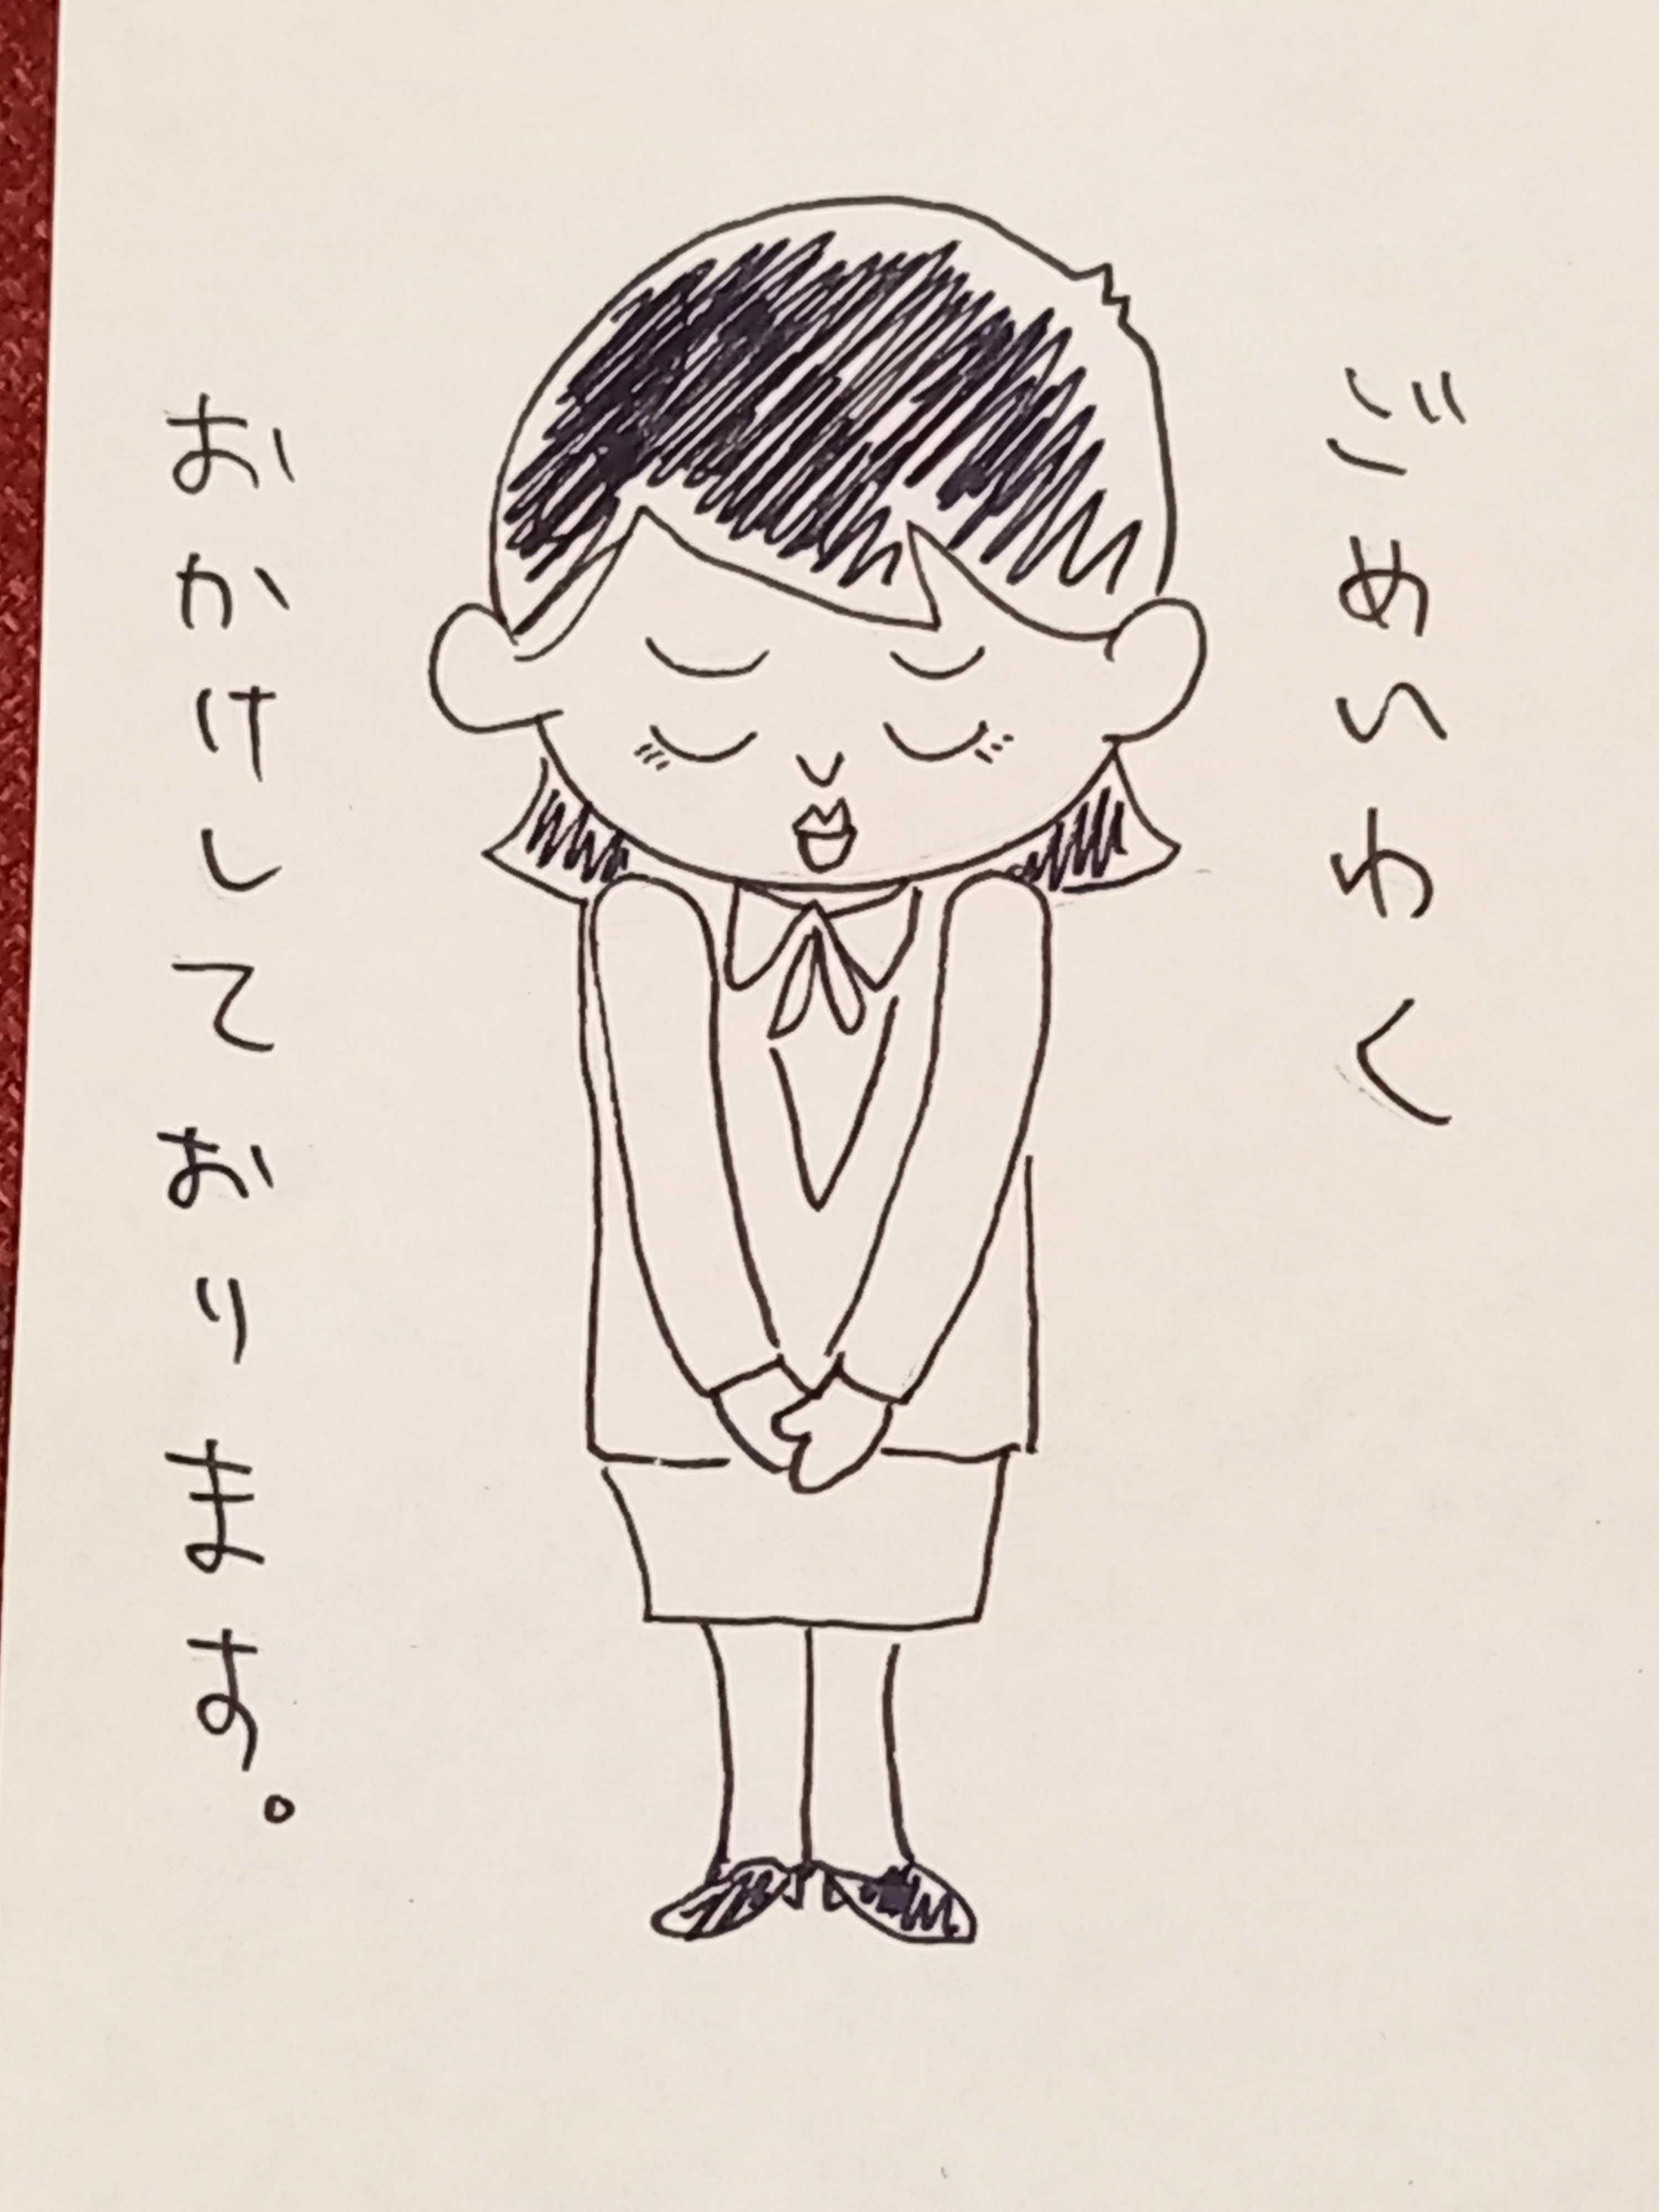 ごめいわく
おかけしております。